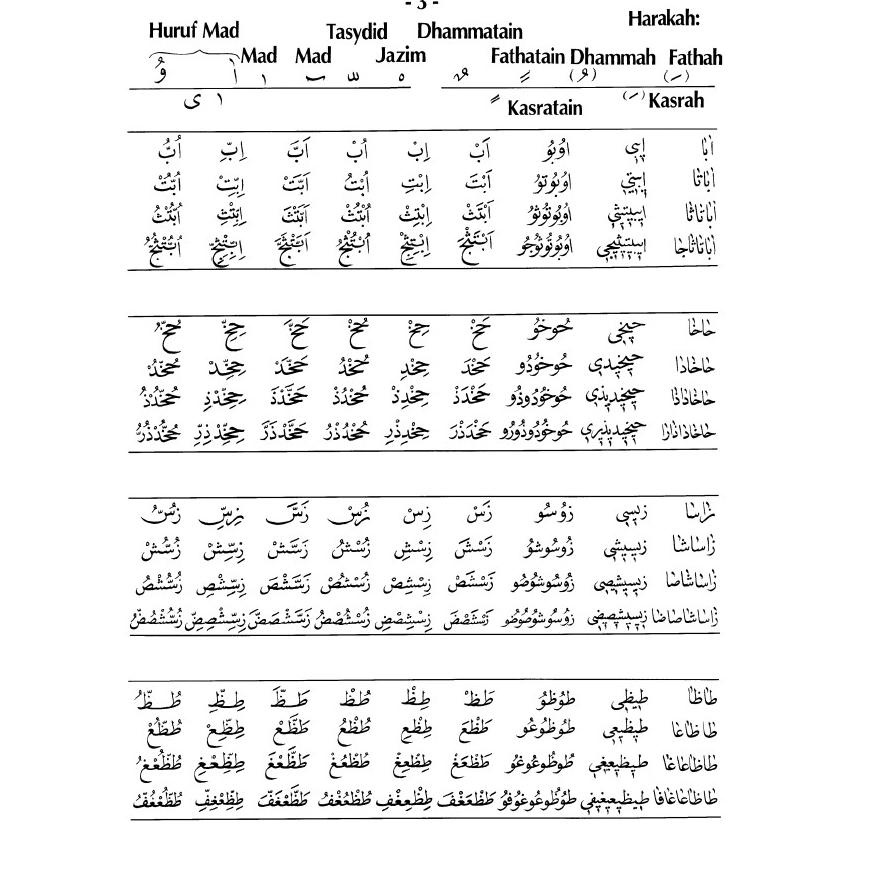 - 3 -
Harakah:
Huruf Mad Tasydid Dhammatain
Mad Mad Jazim Fathatain Dhammah Fathah
Kasratain Kasrah
اٰبٰا اِيبِي اُوبُو اَبْ اِبْ اُبْ اَبَّ اِبِّ اُبُّ
اٰبٰاتٰا اِيبِيتِي اُوبُوتُو اَبْتَ اِبْتِ اُبْتُ اَبَّتْ اِبِّتْ اُبُّتْ
اٰبٰاتٰاثٰا اِيبِيتِيثِي اُوبُوتُوثُو اَبْتَثْ اِبْتِثْ اُبْتُثْ اَبَّتْثَ اِبِّتْثِ اُبُّتْثُ
اٰبٰاتٰاثٰاجٰا اِيبِيتِيثِيجِي اُوبُوتُوثُوجُو اَبْتَثْجَ اِبْتِثْجِ اُبْتُثْجُ اَبَّتْثَجَّ اِبِّتْثِجِّ اُبُّتْثُجُّ
حٰاخٰا حِيخِي حُوخُو حَخْ حِخْ حُخْ حَخَّ حِخِّ حُخُّ
حٰاخٰادٰا حِيخِيدِي حُوخُودُو حَخْدَ حِخْدِ حُخْدُ حَخَّدْ حِخِّدْ حُخُّدْ
حٰاخٰادٰاذٰا حِيخِيدِيذِي حُوخُودُوذُو حَخْدَذْ حِخْدِذْ حُخْدُذْ حَخَّدْذَ حِخِّدْذِ حُخُّدْذُ
حٰاخٰادٰاذٰارٰا حِيخِيدِيذِيرِي حُوخُودُوذُورُو حَخْدَذْرَ حِخْدِذْرِ حُخْدُذْرُ حَخَّدْذَرَّ حِخِّدْذِرِّ حُخُّدْذُرُّ
زٰاسٰا زِيسِي زُوسُو زَسْ زِسْ زُسْ زَسَّ زِسِّ زُسُّ
زٰاسٰاشٰا زِيسِيشِي زُوسُوشُو زَسْشَ زِسْشِ زُسْشُ زَسَّشْ زِسِّشْ زُسُّشْ
زٰاسٰاشٰاصٰا زِيسِيشِيصِي زُوسُوشُوصُو زَسْشَصْ زِسْشِصْ زُسْشُصْ زَسَّشْصَ زِسِّشْصِ زُسُّشْصُ
زٰاسٰاشٰاصٰاضٰا زِيسِيشِيصِيضِي زُوسُوشُوصُوضُو زَسْشَصْضَ زِسْشِصْضِ زُسْشُصْضُ زَسَّشْصَضَّ زِسِّشْصِضِّ زُسُّشْصُضُّ
طٰاظٰا طِيظِي طُوظُو طَظْ طِظْ طُظْ طَظَّ طِظِّ طُظُّ
طٰاظٰاعٰا طِيظِيعِي طُوظُوعُو طَظْعَ طِظْعِ طُظْعُ طَظَّعْ طِظِّعْ طُظُّعْ
طٰاظٰاعٰاغٰا طِيظِيعِيغِي طُوظُوعُوغُو طَظْعَغْ طِظْعِغْ طُظْعُغْ طَظَّعْغَ طِظِّعْغِ طُظُّعْغُ
طٰاظٰاعٰاغٰافٰا طِيظِيعِيغِيفِي طُوظُوعُوغُوفُو طَظْعَغْفَ طِظْعِغْفِ طُظْعُغْفُ طَظَّعْغَفَّ طِظِّعْغِفِّ طُظُّعْغُفُّ